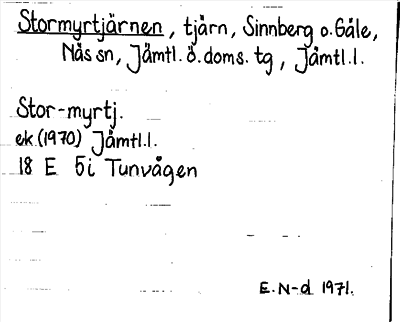 Stormyrtjärnen, tjärn, Sinnberg o. Gåle,
Näs sn, Jämtl. ö. doms. tg, Jämtl. l.
Stor-myrtj.
ek (1970) Jämtl. l.
18 E 5i Tunvågen
E. N-d 1971.